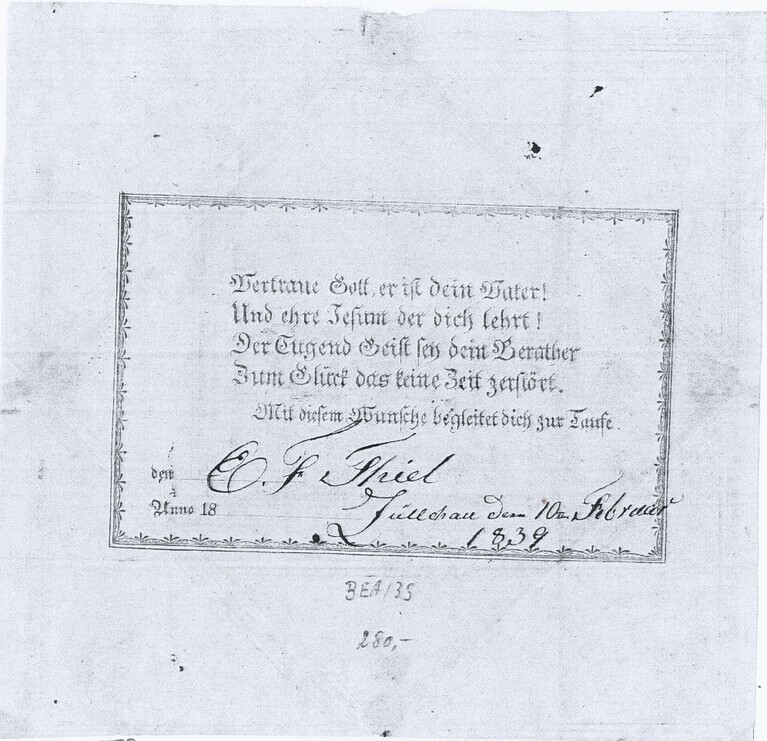 Vertraue Gott, er ist dein Vater!
Und ehre Jesum der dich lehrt!
Der Tugend Geist sey dein Berather
Zum Glück das keine Zeit zerstört.
Mit diesem Wunsche begleitet dich zur Taufe.
den E. F. Thiel
Anno 18
Züllchau den 10ten Februar
1839
BEA/35
280,-